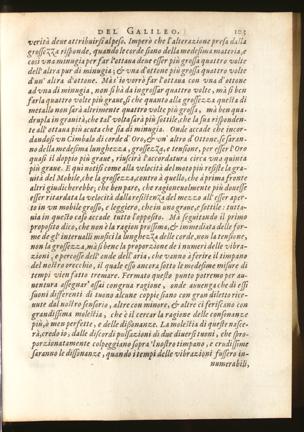 DEL GALILEO. 103
verità deue attribuirsi al peso. Imperò che l'alterazione presa dalla
grossezza risponde, quando le corde siano della medesima materia, e
così vna minugia per far l'ottaua deue esser più grossa quattro volte
dell'altra pur di minugia; & vna d'ottone più grossa quattro volte
d'vn' altra d'ottone. Ma s'io vorrò far l'ottaua con vna d'ottone
ad vna di minugia, non si hà da ingrossar quattro volte, mà sì ben
farla quattro volte più graue, sì che quanto alla grossezza questa di
metallo non sarà altrimente quattro volte più grossa, mà ben qua-
drupla in grauità, che tal volta sarà più sottile, che la sua risponden-
te all'ottaua più acuta che sia di minugia. Onde accade che incor-
dandosi vn Cimbalo di corde d'Oro, & vn' altro d'Ottone, se faran-
no della medesima lunghezza, grossezza, e tensione, per esser l'Oro
quasi il doppio più graue, riuscirà l'accordatura circa vna quinta
più graue. E quì notisi come alla velocità del moto più resiste la gra-
uità del Mobile, che la grossezza, contro à quello, che à prima fronte
altri giudicherebbe, che ben pare, che ragioneuolmente più douesse
esser ritardata la velocità dalla resistenza del mezzo all'esser aper-
to in vn mobile grosso, e leggiero, che in vno graue, e sottile: tutta-
uia in questo caso accade tutto l'opposito. Mà seguitando il primo
proposito dico, che non è la ragion prossima, & immediata delle for-
me de gl'interualli musici la lunghezza delle corde, non la tensione,
non la grossezza, mà sì bene la proporzione de i numeri delle vibra-
zioni, e percosse dell'onde dell'aria, che vanno à ferire il timpano
del nostro orecchio, il quale esso ancora sotto le medesime misure di
tempi vien fatto tremare. Fermato questo punto potremo per au-
uentura assegnar' assai congrua ragione, onde auuenga che di essi
suoni differenti di tuono alcune coppie siano con gran diletto rice-
uute dal nostro sensorio, altre con minore, & altre ci feriscano con
grandissima molestia, che è il cercar la ragione delle consonanze
più, ò men perfette, e delle dissonanze. La molestia di queste nasce-
rà, credo io, dalle discordi pulsazioni di due diuersi tuoni, che spro-
porzionatamente colpeggiano sopra 'l nostro timpano, e crudissime
saranno le dissonanze, quando i tempi delle vibrazioni fussero in-
numerabili,